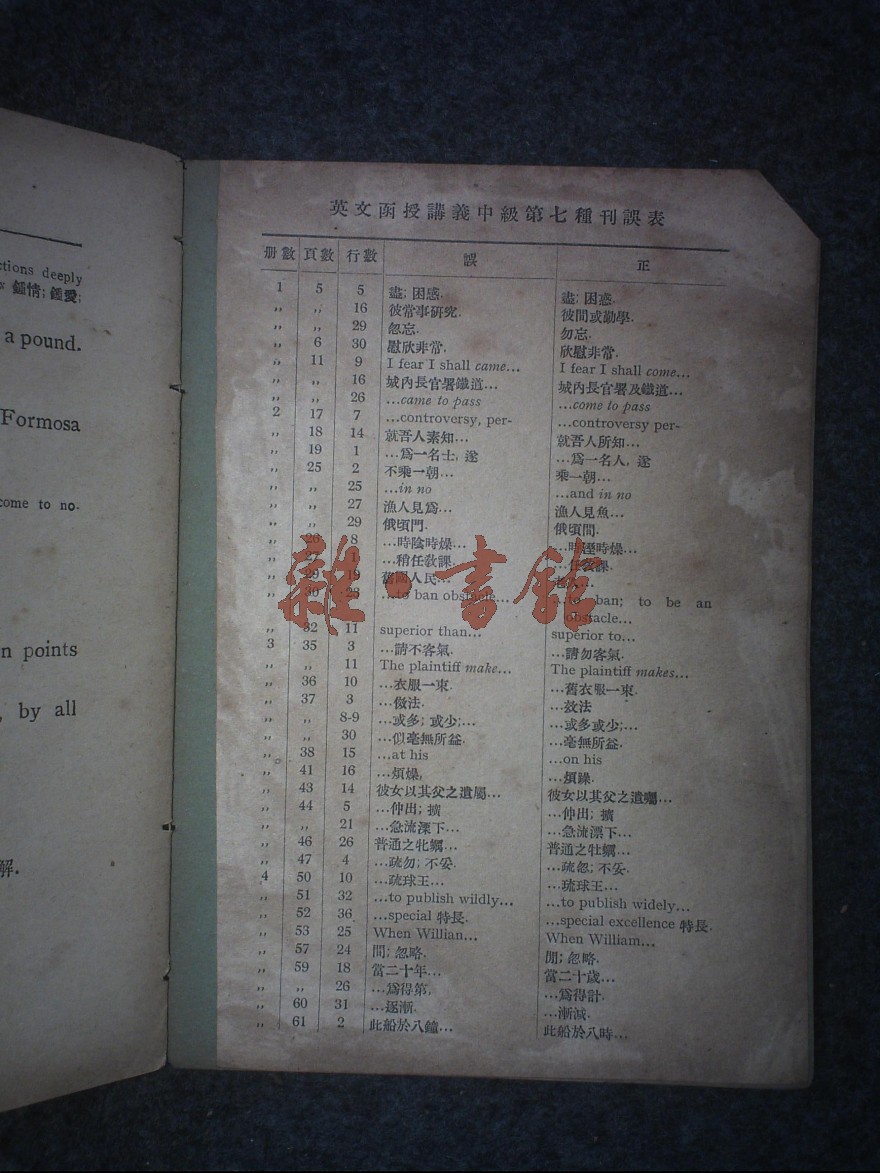 ctions deeply
鍾情; 鍾愛;
a pound.
Formosa
come to no-
n points
, by all
解.
英文函授講義中級第七種刊誤表
册數 頁數 行數 誤 正
1 5 5 盡; 困惑. 盡; 困惑.
,, ,, 16 彼當事研究. 彼間或勤學.
,, ,, 29 忽忘. 勿忘.
,, 6 30 慰欣非常. 欣慰非常.
,, 11 9 I fear I shall came... I fear I shall come...
,, ,, 16 城內長官署鐵道... 城內長官署及鐵道...
,, ,, 26 ...came to pass ...come to pass
2 17 7 ...controversy, per- ...controversy per-
,, 18 14 就吾人素知... 就吾人所知...
,, 19 1 ...爲一名士, 遂 ...爲一名人, 遂
,, 25 2 不乘一朝... 乘一朝...
,, ,, 25 ...in no ...and in no
,, ,, 27 漁人見爲... 漁人見魚...
,, ,, 29 俄頃門. 俄頃間.
,, 8 ...時陰時燥... 時燥...
,, 1 ...稍任敎課. 任敎課.
,, 29 19 人民...
,, 30 23 ...to ban obstacle... ...to ban; to be an
obstacle...
,, 32 11 superior than... superior to...
3 35 3 ...請不客氣. ...請勿客氣.
,, ,, 11 The plaintiff make... The plaintiff makes...
,, 36 10 ...衣服一束. ...舊衣服一束.
,, 37 3 ...倣法. ...效法
,, ,, 8-9 ...或多; 或少;... ...或多或少;...
,, ,, 30 ...似毫無所益. ...毫無所益.
,, 38 15 ...at his ...on his
,, 41 16 ...煩燥, ...煩躁.
,, 43 14 彼女以其父之遺屬... 彼女以其父之遺囑...
,, 44 5 ...仲出; 擴 ...伸出; 擴
,, ,, 21 ...急流溧下... ...急流漂下...
,, 46 26 普通之牝蠣... 普通之牡蠣...
,, 47 4 ...疏勿; 不妥. ...疏忽; 不妥.
4 50 10 ...疏球王... ...琉球王...
,, 51 32 ...to publish wildly... ...to publish widely...
,, 52 36 ...special 特長. ...special excellence 特長.
,, 53 25 When Willian... When William...
,, 57 24 間; 忽略. 閒; 忽略.
,, 59 18 當二十年... 當二十歲...
,, ,, 26 ...爲得第. ...爲得計.
,, 60 31 ...逐漸. ...漸減.
,, 61 2 此船於八鐘... 此船於八時...
雜書館